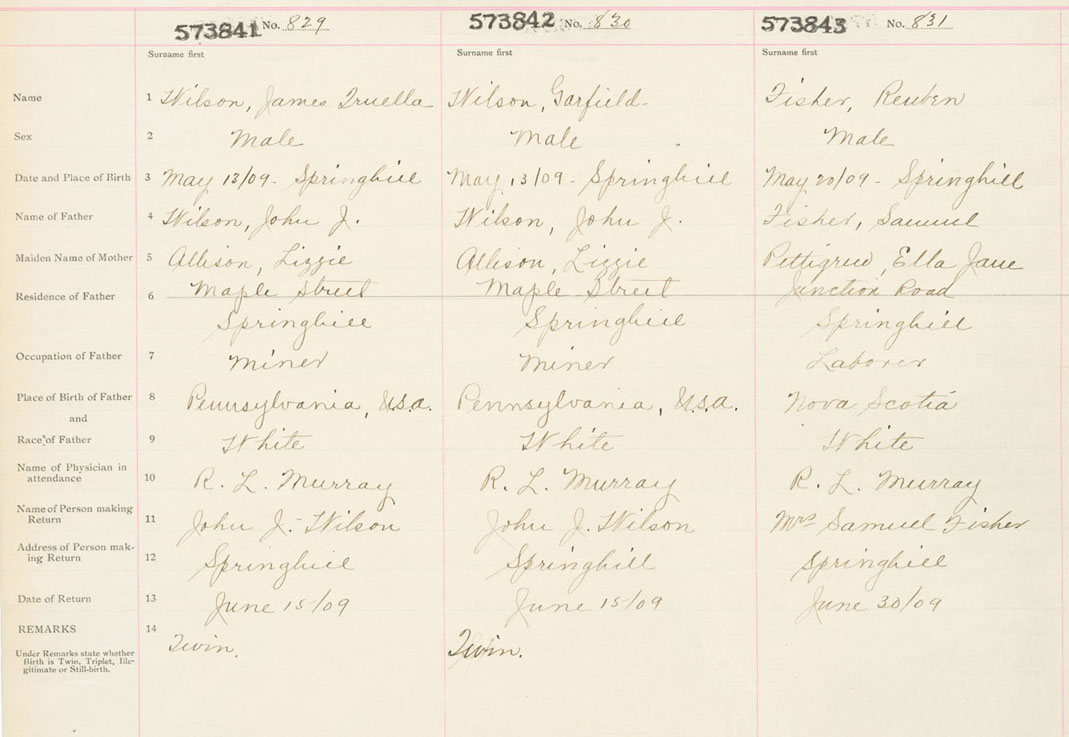 573841 No. 829 573842 No. 830 573843 No. 831
Surname first Surname first Surname first
Name 1 Wilson, James Truella Wilson, Garfield- Fisher, Reuben
Sex 2 Male Male Male
Date and Place of Birth 3 May 13/09- Springhill May 13/09- Springhill May 20/09- Springhill
Name of Father 4 Wilson, John J. Wilson, John J. Fisher, Samuel
Maiden Name of Mother 5 Allison, Lizzie Allison, Lizzie Pettigrew, Ella Jane
Residence of Father 6 Maple Street Maple Street Junction Road
Springhill Springhill Springhill
Occupation of Father 7 Miner Miner Laborer
Place of Birth of Father 8 Pennsylvania, U.S.A. Pennsylvania, U.S.A. Nova Scotia
and
Race of Father 9 White White White
Name of Physician in
attendance 10 R. L. Murray R. L. Murray R. L. Murray
Name of Person making
Return 11 John J. Wilson John J. Wilson Mrs Samuel Fisher
Address of Person mak-
ing Return 12 Springhill Springhill Springhill
Date of Return 13 June 15/09 June 15/09 June 30/09
REMARKS 14 Twin. Twin.
Under Remarks state whether
Birth is Twin, Triplet, Ille-
gitimate or Still-birth.